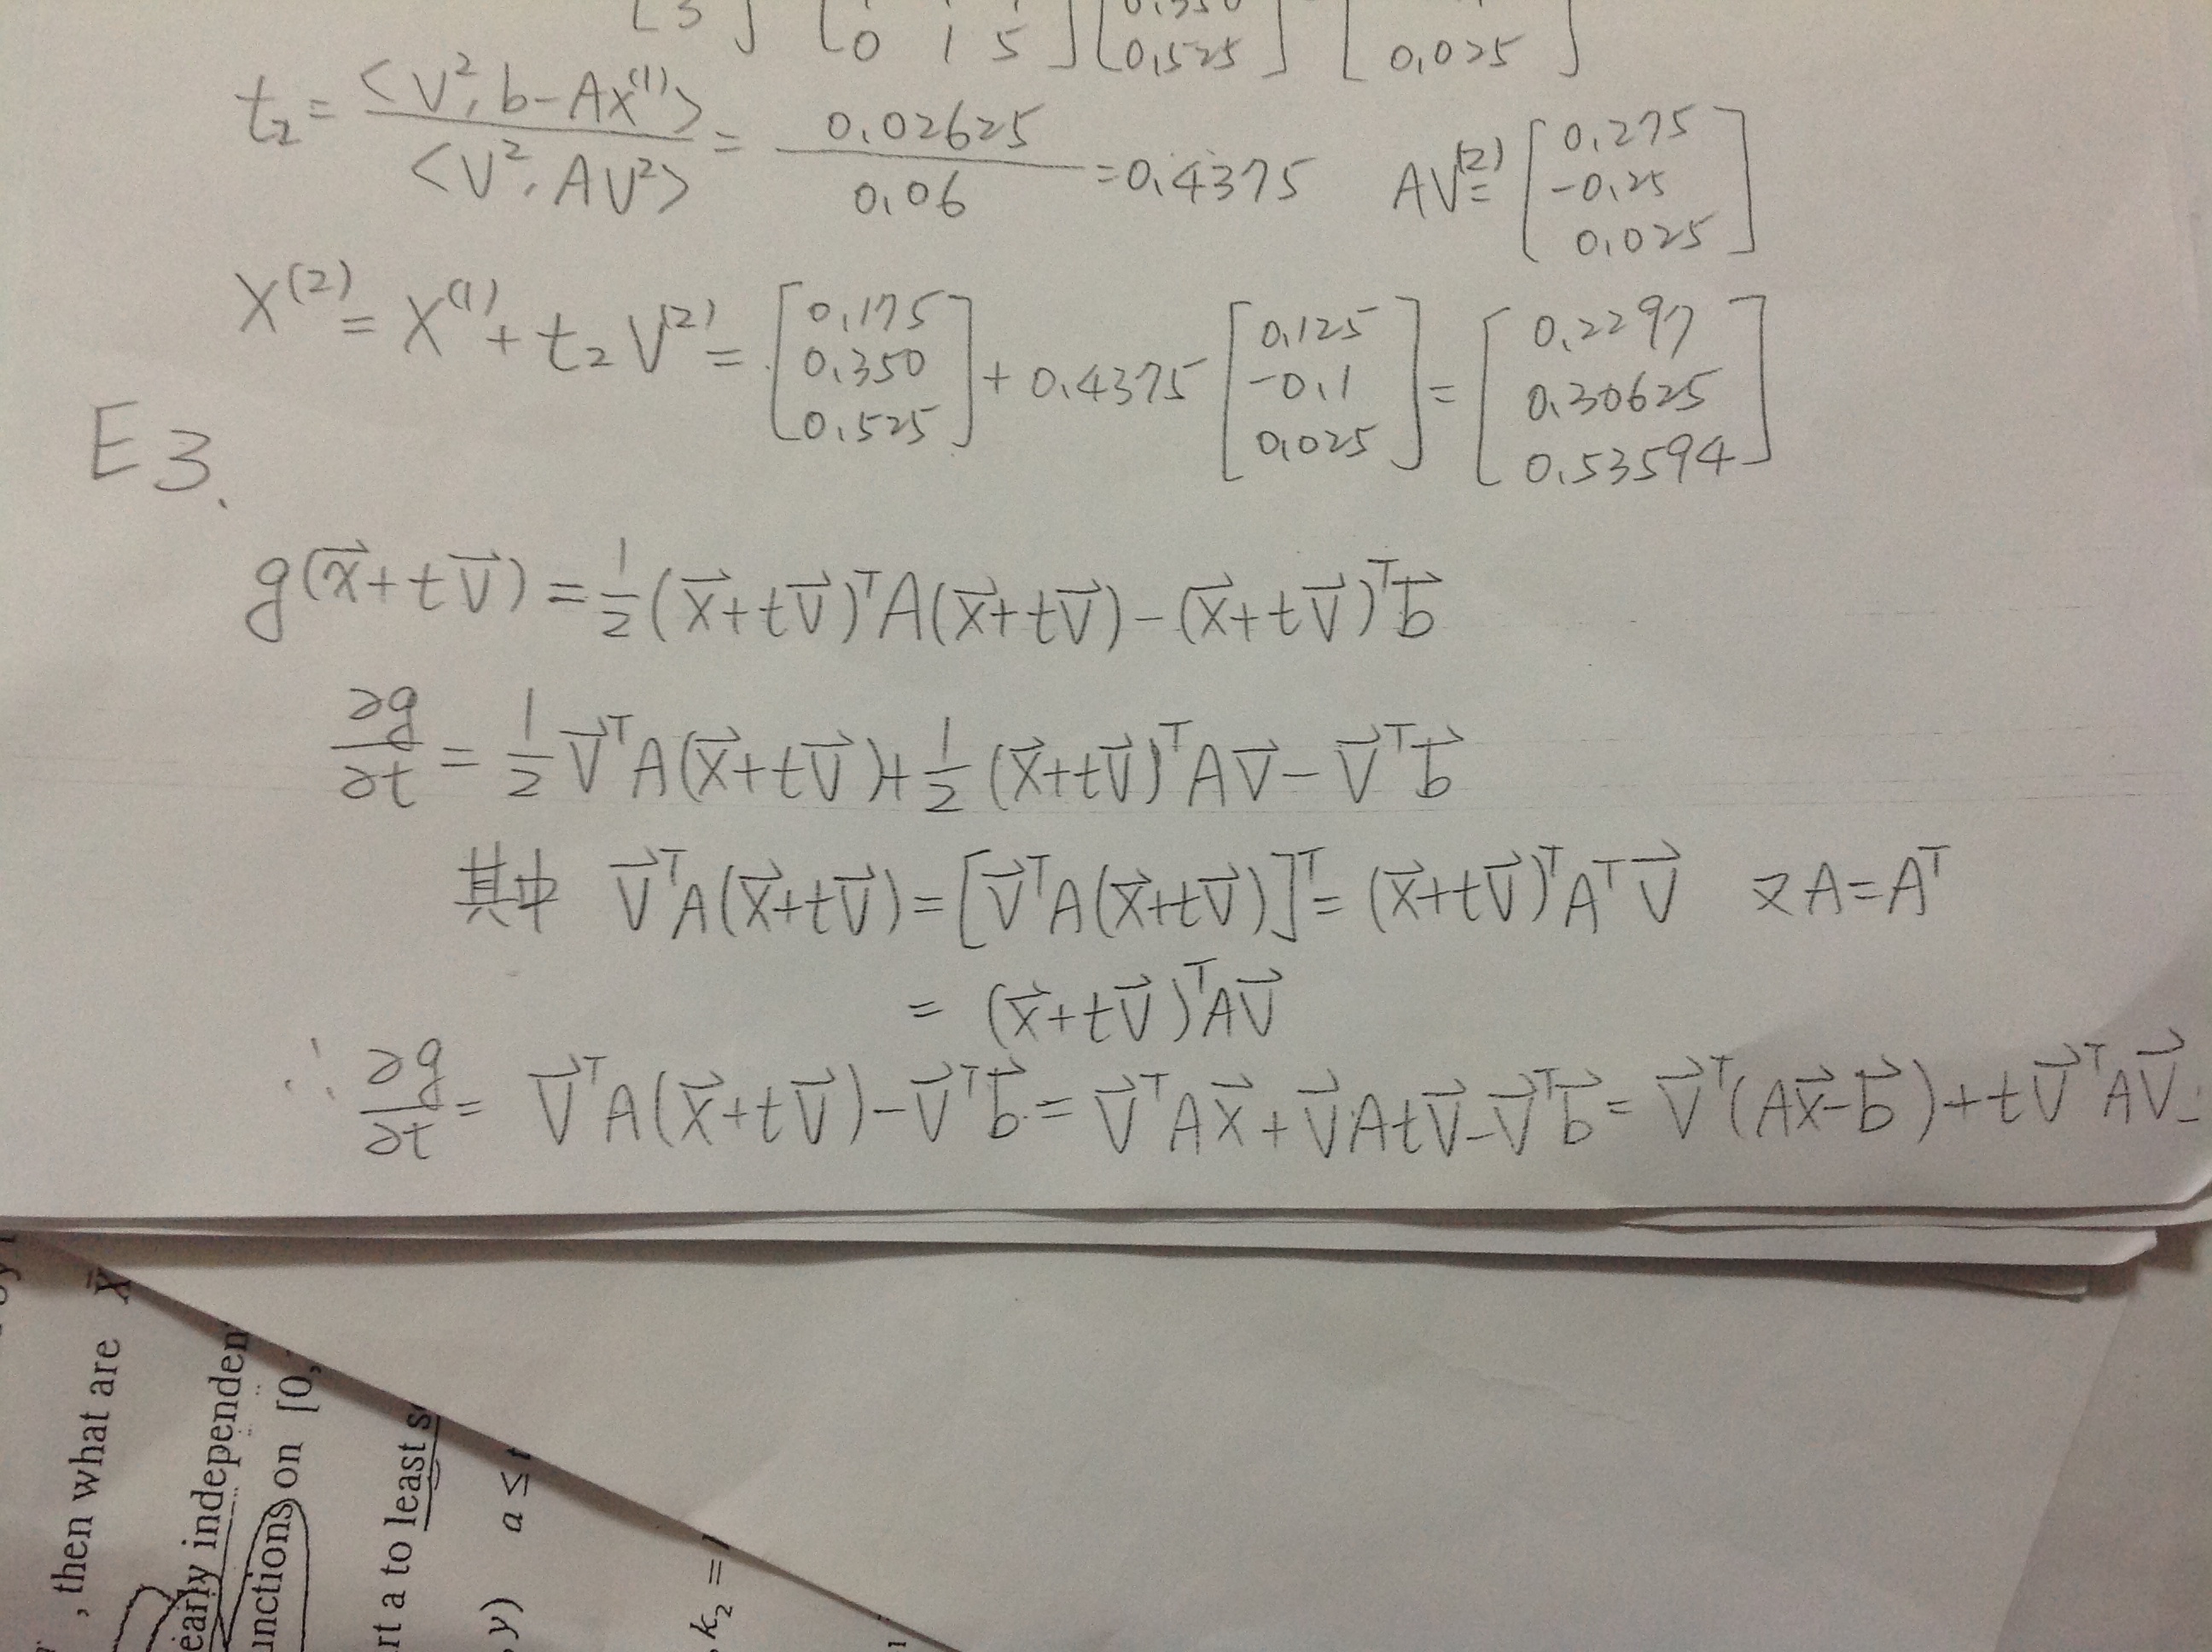 [3] [0 1 5] [0.350 0.525] [0.025]
t₂ = <V², b-AX⁽¹⁾> / <V², AV²> = 0.02625 / 0.06 = 0.4375 AV⁽²⁾ = [0.275 -0.25 0.025]
X⁽²⁾ = X⁽¹⁾ + t₂ V⁽²⁾ = [0.175 0.350 0.525] + 0.4375 [0.125 -0.1 0.025] = [0.2297 0.30625 0.53594]
E3.
g(x⃗+tv⃗) = 1/2 (x⃗+tv⃗)ᵀA(x⃗+tv⃗) - (x⃗+tv⃗)ᵀb⃗
∂g/∂t = 1/2 v⃗ᵀA(x⃗+tv⃗) + 1/2 (x⃗+tv⃗)ᵀAv⃗ - v⃗ᵀb⃗
其中 v⃗ᵀA(x⃗+tv⃗) = [v⃗ᵀA(x⃗+tv⃗)]ᵀ = (x⃗+tv⃗)ᵀAᵀv⃗ 又A=Aᵀ
= (x⃗+tv⃗)ᵀAv⃗
∴ ∂g/∂t = v⃗ᵀA(x⃗+tv⃗) - v⃗ᵀb⃗ = v⃗ᵀAx⃗ + v⃗Atv⃗ - v⃗ᵀb⃗ = v⃗ᵀ(Ax⃗-b⃗) + tv⃗ᵀAv⃗
, then what are x̄
early independen
unctions on [0,
rt a to least s
, y) a ≤ t
, k₂ =